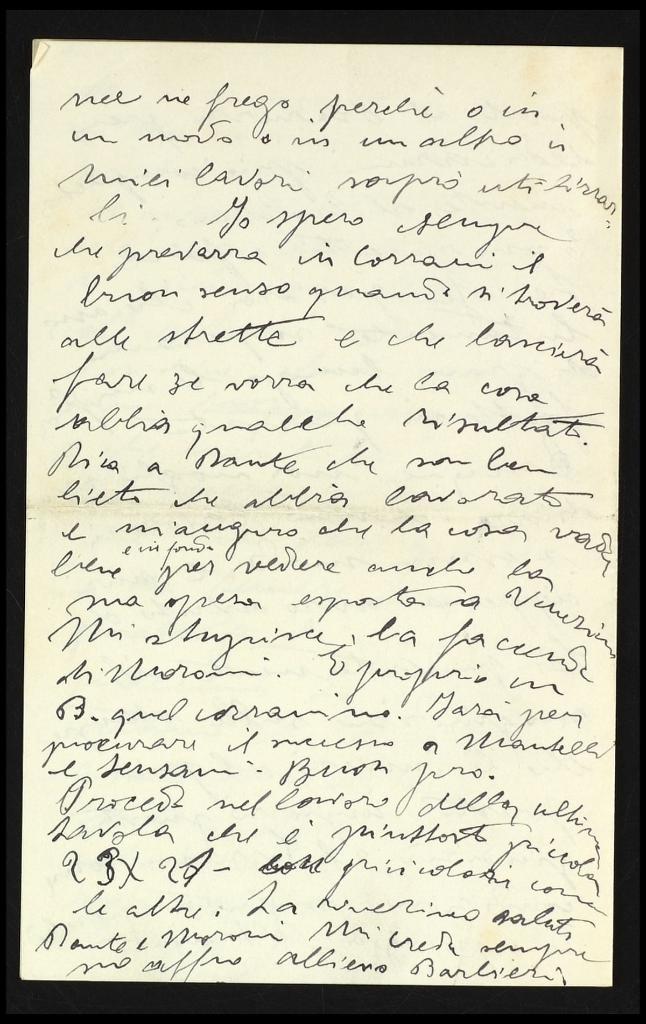 me ne frego perchè o in
un modo o in un altro i
miei lavori saprò utilizzar=
li. Io spero sempre
che prevarrà in Corrani il
buon senso quando si troverà
alle strette e che lascierà
fare se vorrà che la cosa
abbia qualche risultato.
Dica a Dante che son ben
lieto che abbia lavorato
e mi auguro che la cosa vada
bene e in fondo per vedere anche la
sua opera esposta a
Mi stupisce la faccenda
di Moroni. È proprio un
B. quel Sarà per
procurare il successo a Mantelli
e Sensani. Buon pro.
Procedo nel lavoro della ultima
tavola che è piuttosto piccola
23X27 - piccola come
le altre. La riverisco saluti
Dante e Moroni Mi creda sempre
suo affmo allievo Barbieri.